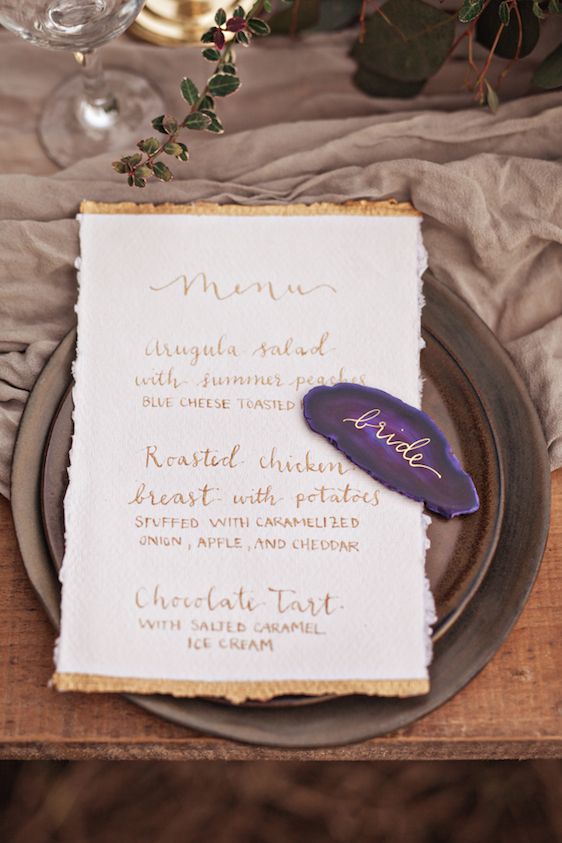 Menu
Arugula salad
with summer peaches
BLUE CHEESE TOASTED
bride
Roasted chicken
breast with potatoes
STUFFED WITH CARAMELIZED
ONION, APPLE, AND CHEDDAR
Chocolate Tart
WITH SALTED CARAMEL
ICE CREAM